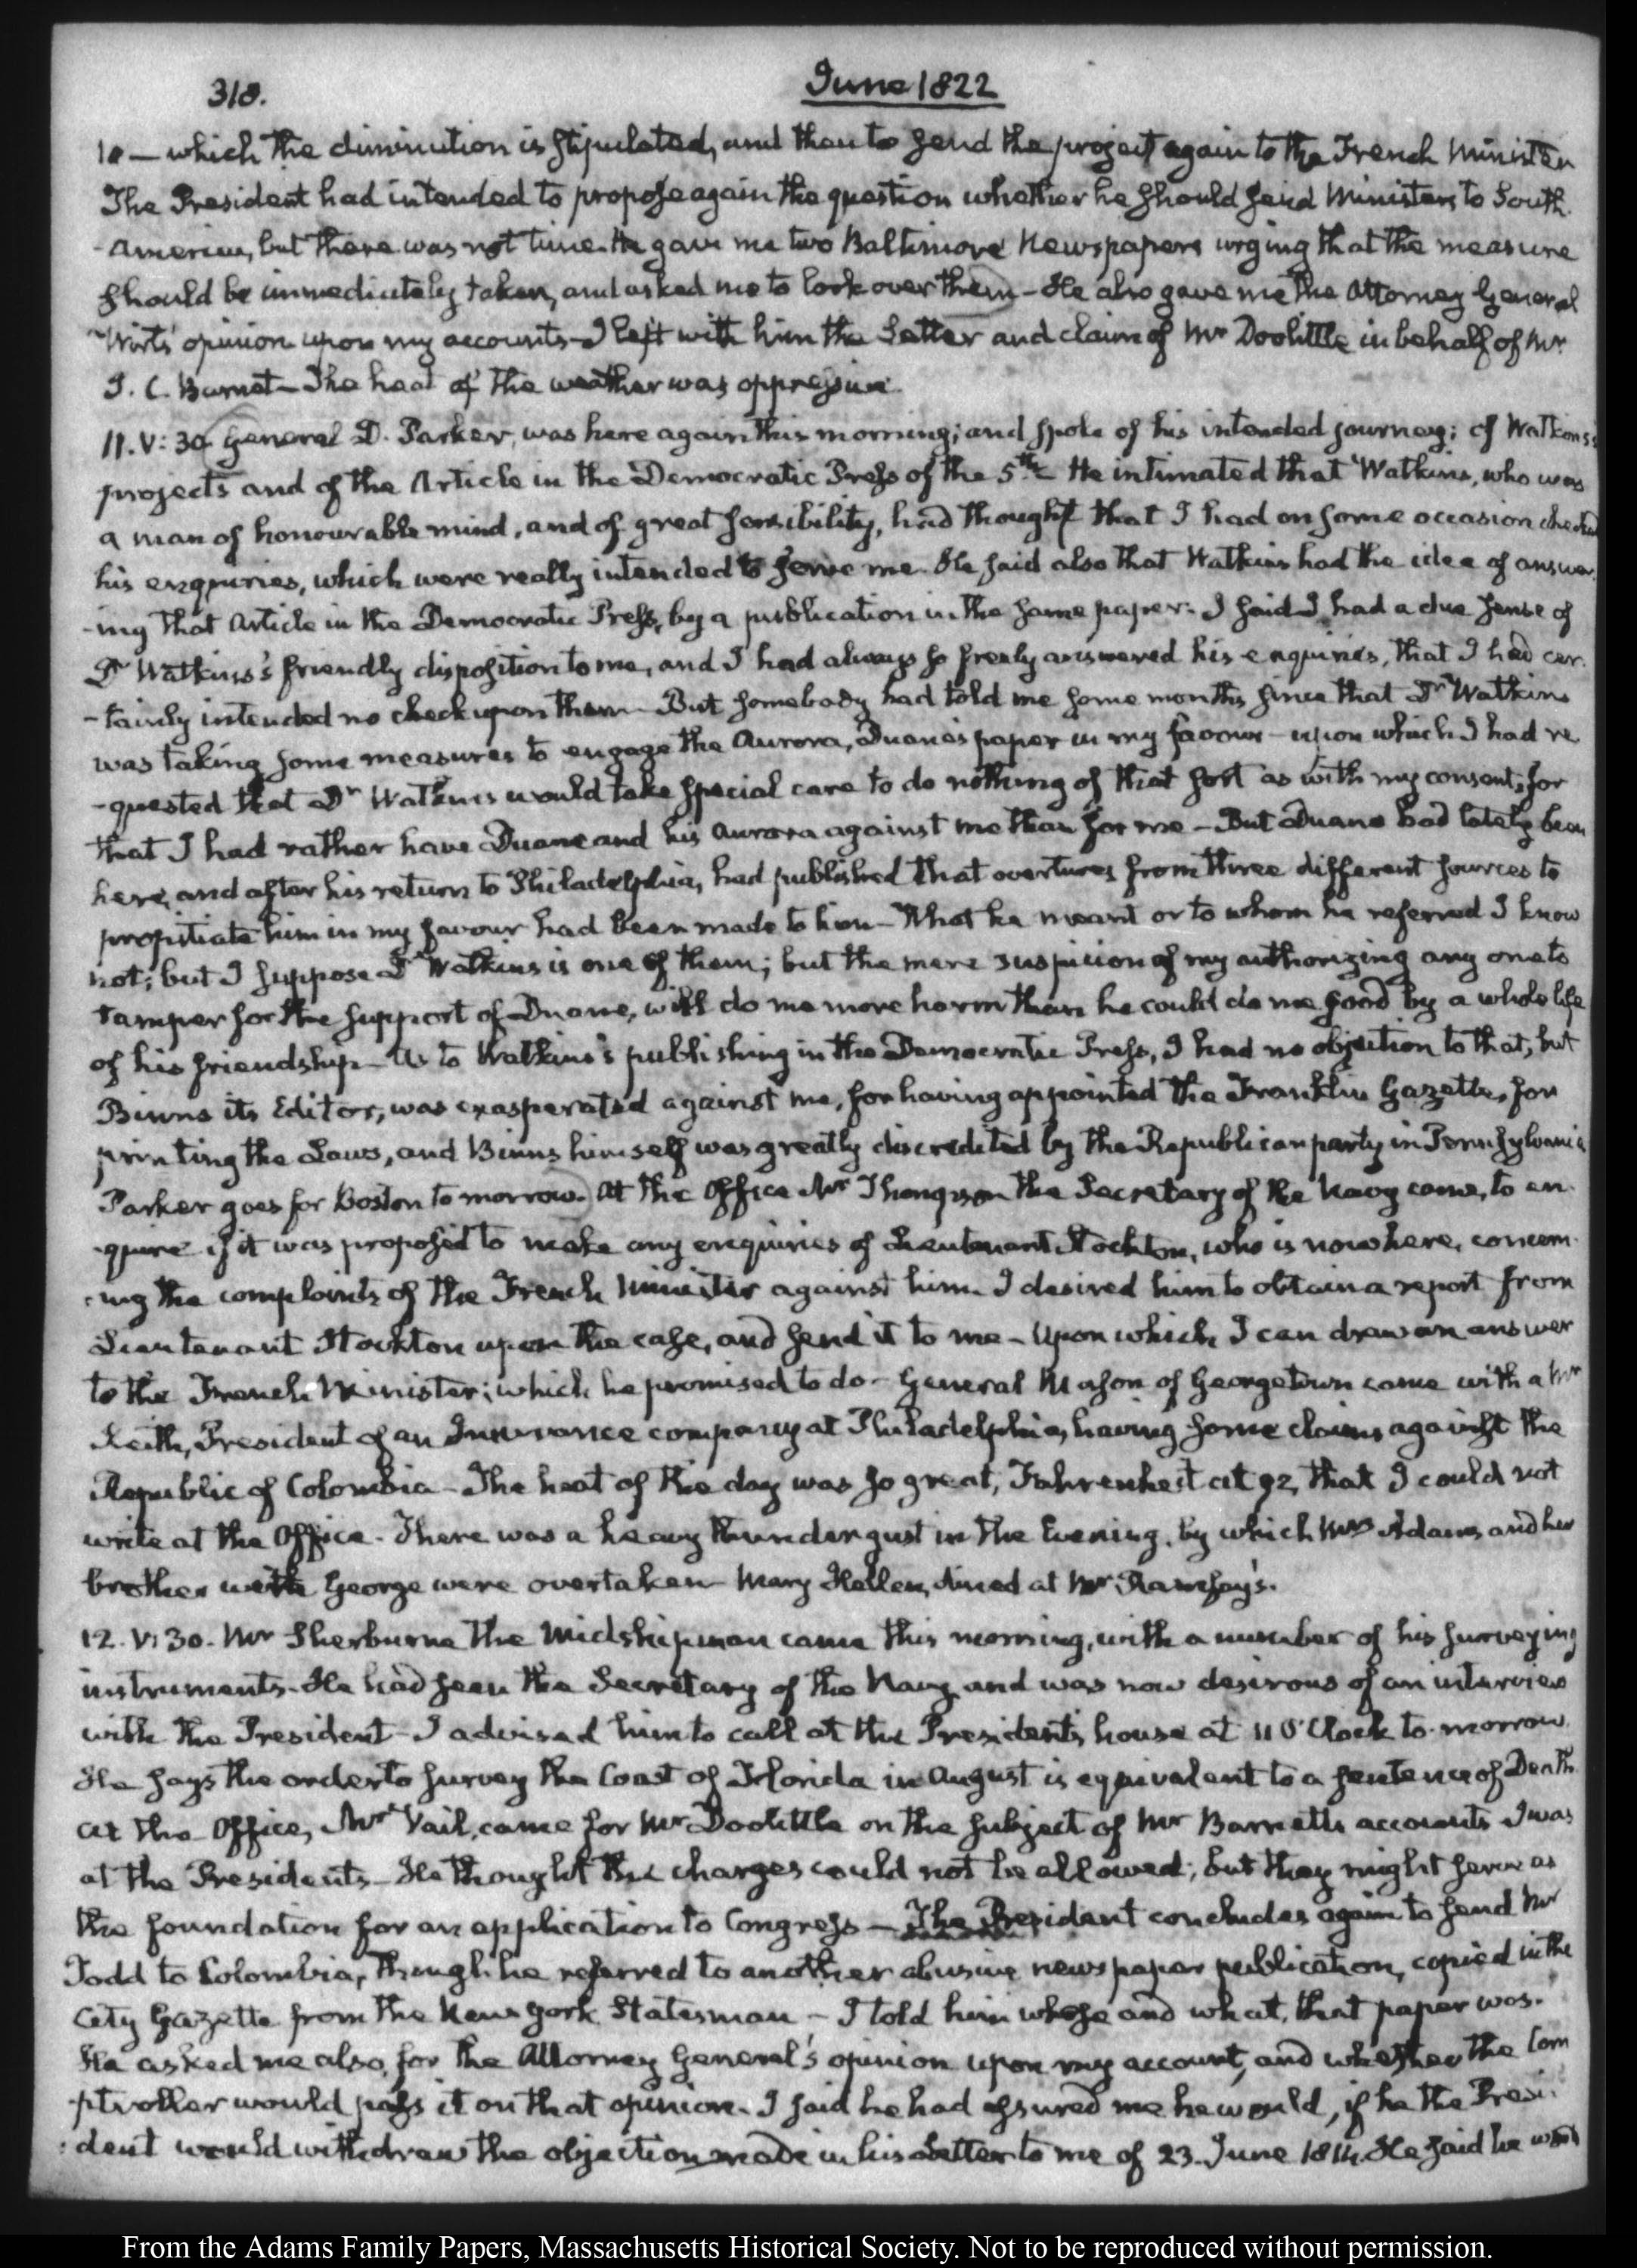 318.
June 1822
10 — which the diminution is stipulated, and then to send the project again to the French Minister
The President had intended to propose again the question whether he should send Ministers to South
-America, but there was not time. He gave me two Baltimore Newspapers urging that the measure
should be immediately taken, and asked me to look over them - He also gave me the Attorney General
Wirt's opinion upon my accounts - I left with him the Letter and claim of Mr Doolittle in behalf of Mr
J. C. Barnet - The heat of the weather was oppressive.
11. V: 30. General D. Parker, was here again this morning; and spoke of his intended journey; of Watkins's
projects and of the Article in the Democratic Press of the 5th. He intimated that Watkins, who was
a man of honourable mind, and of great sensibility, had thought that I had on some occasion checked
his enquiries, which were really intended to serve me. He said also that Watkins had the idea of answer-
-ing that Article in the Democratic Press, by a publication in the same paper. I said I had a due sense of
Dr Watkins's friendly disposition to me, and I had always so freely answered his enquiries, that I had cer-
-tainly intended no check upon them - But somebody had told me some months since that Dr Watkins
was taking some measures to engage the Aurora, Duane's paper in my favour - upon which I had re
-quested that Dr Watkins would take special care to do nothing of that sort as with my consent; for
that I had rather have Duane and his Aurora against me than for me - But Duane had lately been
here, and after his return to Philadelphia, had published that overtures from three different sources to
propitiate him in my favour had been made to him - What he meant or to whom he referred I know
not; but I suppose Dr Watkins is one of them; but the mere suspicion of my authorizing any one to
tamper for the support of Duane, will do me more harm than he could do me good by a whole life
of his friendship - As to Watkins's publishing in the Democratic Press, I had no objection to that, but
Binns its Editor, was exasperated against me, for having appointed the Franklin Gazette, for
printing the Laws, and Binns himself was greatly discredited by the Republican party in Pennsylvania
Parker goes for Boston to morrow. At the Office Mr Thompson the Secretary of the Navy came, to en-
-quire if it was proposed to make any enquiries of Lieutenant Stockton, who is now here, concern-
-ing the complaints of the French Minister against him. I desired him to obtain a report from
Lieutenant Stockton upon the case, and send it to me - Upon which I can draw an answer
to the French Minister; which he promised to do - General Mason of Georgetown came with a Mr
Leith, President of an Insurance company at Philadelphia, having some claims against the
Republic of Colombia - The heat of the day was so great, Fahrenheit at 92, that I could not
write at the Office. There was a heavy thunder gust in the Evening, by which Mrs Adams and her
brother with George were overtaken - Mary Hellen, dined at Mr Ramsay's.
12. V: 30. Mr Sherburne the Midshipman came this morning, with a number of his surveying
instruments. He had seen the Secretary of the Navy and was now desirous of an interview
with the President - I advised him to call at the President's house at 11 O'Clock to-morrow.
He says the order to survey the Coast of Florida in August is equivalent to a sentence of Death.
At the Office, Mr Vail, came for Mr Doolittle on the subject of Mr Barnett's accounts I was
at the President's - He thought the charges could not be allowed; but they might serve as
the foundation for an application to Congress — The President concludes again to send Mr
Todd to Colombia, though he referred to another abusive newspaper publication, copied in the
City Gazette from the New York Statesman - I told him whose and what, that paper was.
He asked me also, for the Attorney General's opinion upon my account, and whether the Com
-ptroller would pass it on that opinion. I said he had assured me he would, if he the Presi-
-dent would withdraw the objection made in his Letter to me of 23. June 1814. He said he
From the Adams Family Papers, Massachusetts Historical Society. Not to be reproduced without permission.